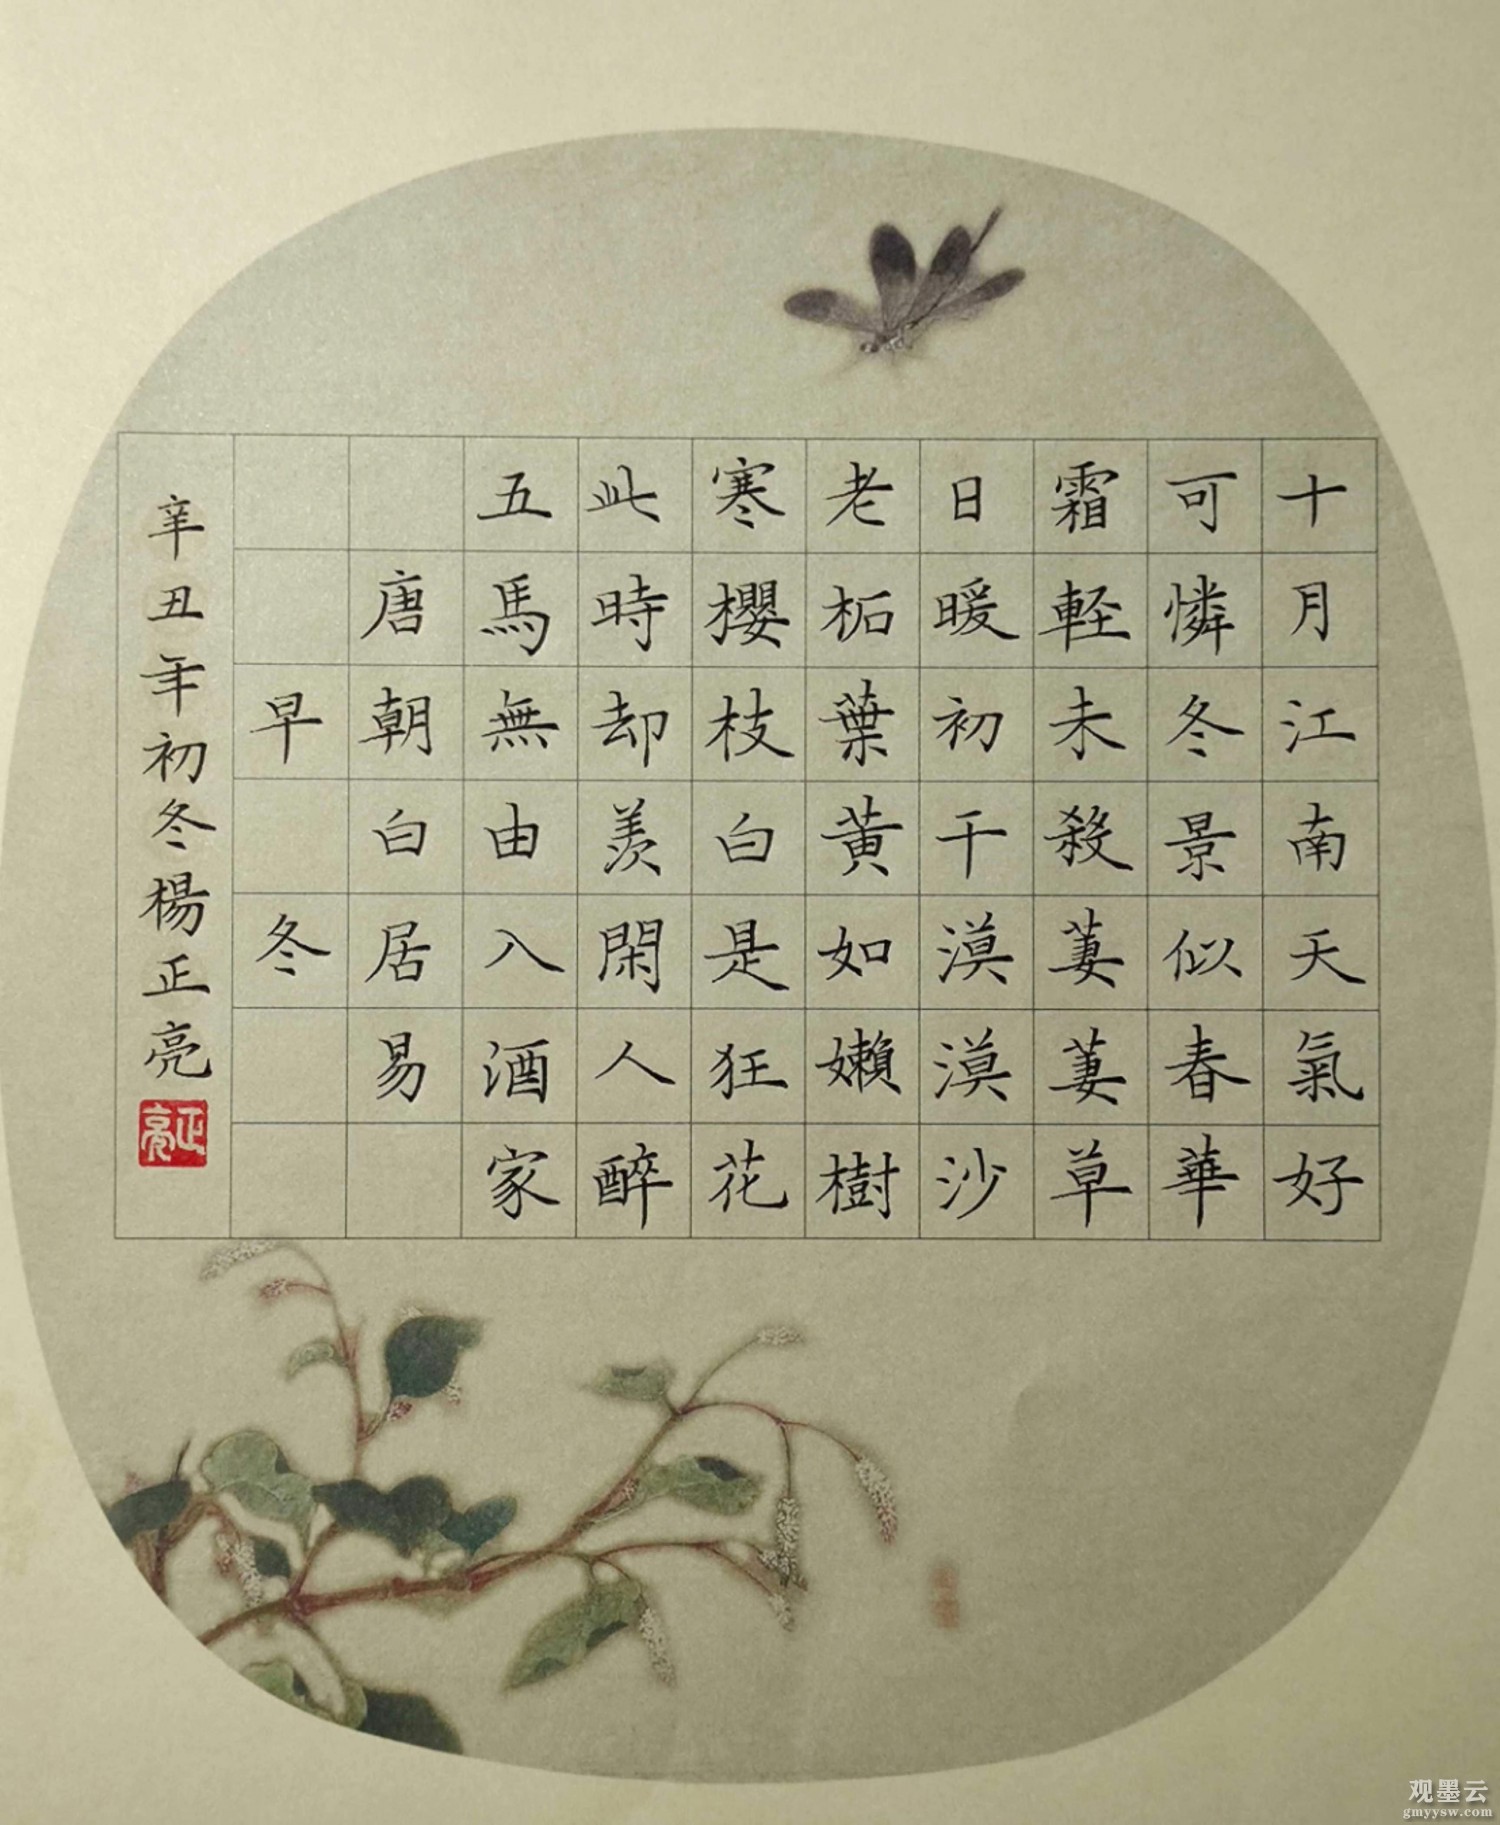 十月江南天氣好
可憐冬景似春華
霜軽未殺萋萋草
日暖初干漠漠沙
老柘葉黃如嫩樹
寒櫻枝白是狂花
此時却羨閑人醉
五馬無由入酒家
唐朝白居易
早冬
辛丑年初冬楊正亮
正亮
观墨云
gmyysw.com